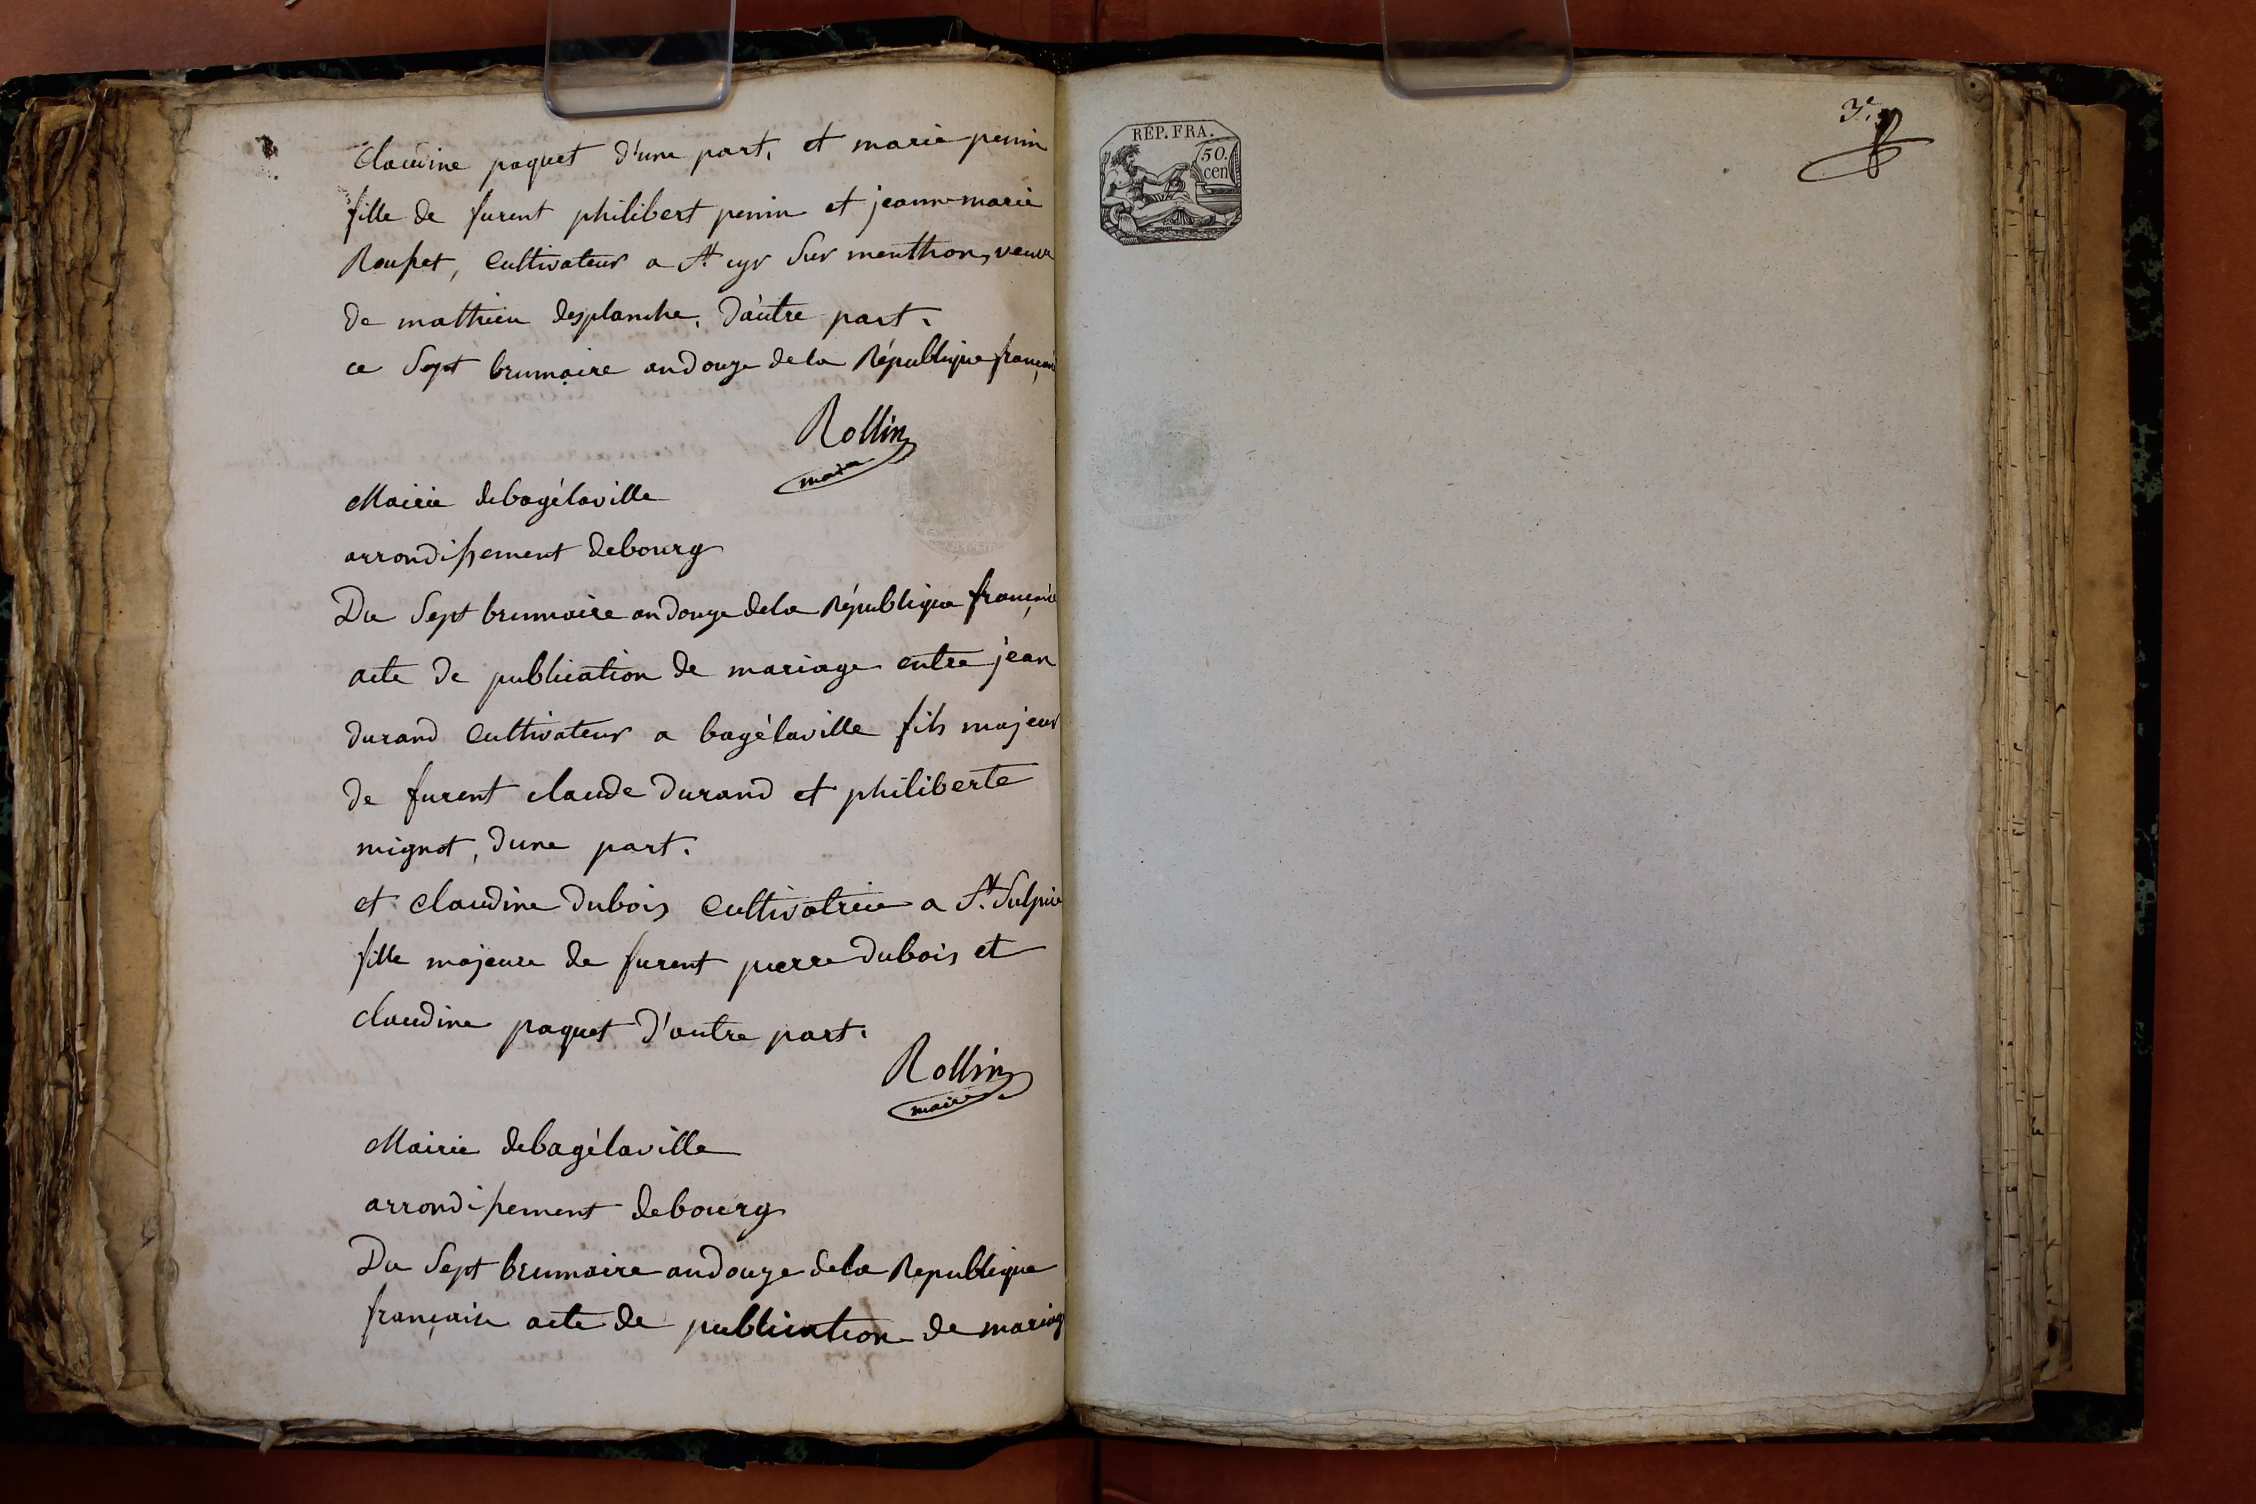 Claudine paquet d'une part, et marie penin
fille de furent philibert penin et jeanne marie
Rousset, cultivateur a St cyr sur menthon, veuve
de mathieu desplanche, d'autre part.
ce sept brumaire an douze de la République français
Rollin
maire
Mairie de bagélaville
arrondissement de bourg
Du sept brumaire an douze de la République française
acte de publication de mariage entre jean
durand cultivateur a bagélaville fils majeur
de furent claude durand et philiberte
mignot, dune part.
et claudine dubois cultivatrice a St. Sulpice
fille majeure de furent pierre dubois et
claudine paquet d'autre part.
Rollin
maire
Mairie de bagélaville
arrondissement de bourg
Du sept brumaire an douze de la Republique
française acte de publication de mariag
REP. FRA.
50.
cen
3e.